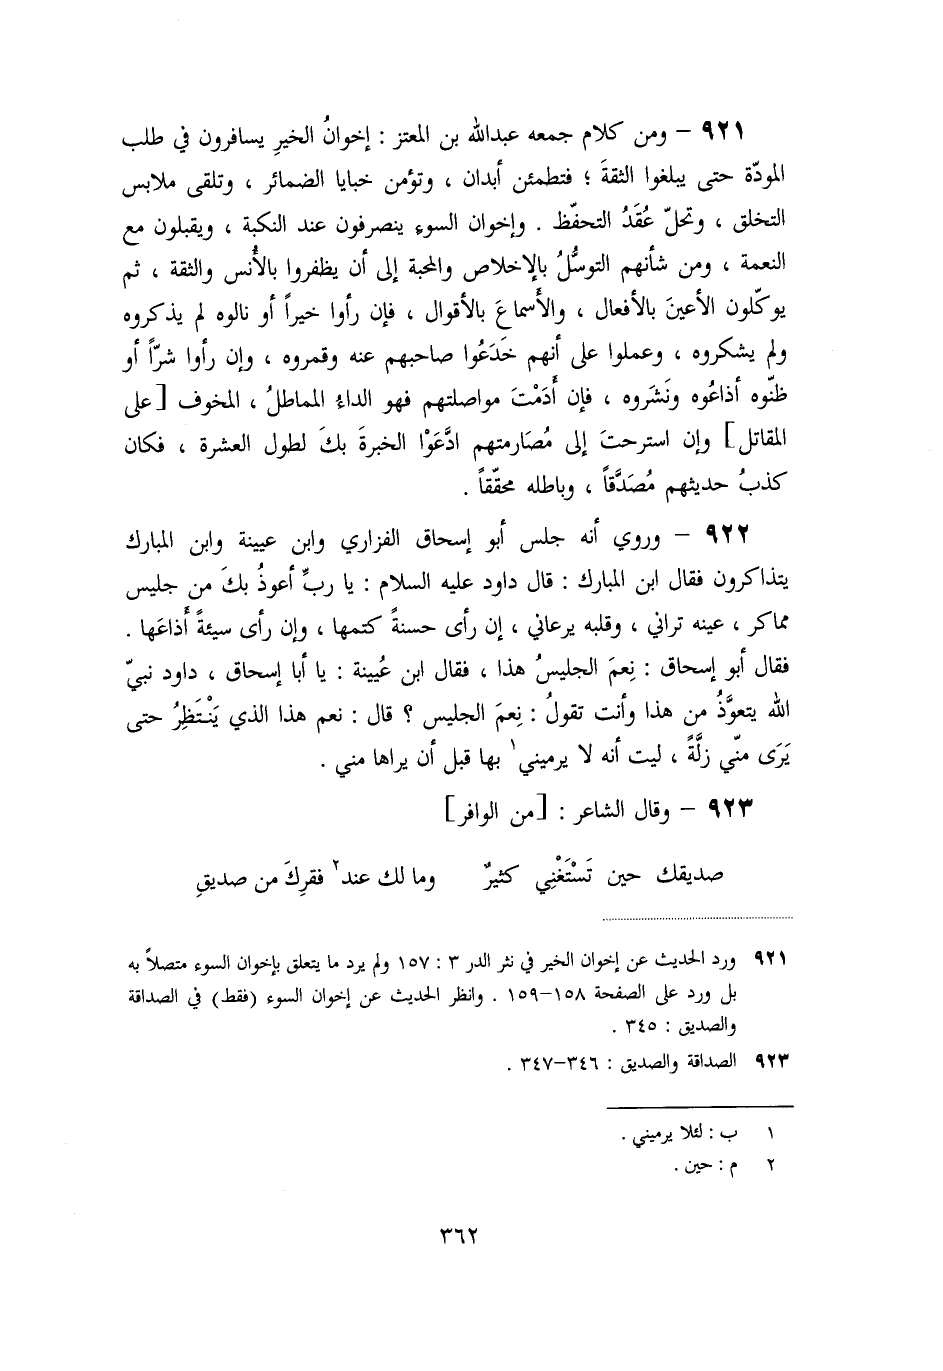 ٩٢١ – ومن كلام جمعه عبدالله بن المعتز : إخوانُ الخيرِ يسافرون في طلب
المودّة حتى يبلغوا الثقةَ ؛ فتطمئن أبدان ، وتؤمن خبايا الضمائر ، وتلقى ملابس
التخلق ، وتحلّ عُقَدُ التحفّظ . وإخوان السوء ينصرفون عند النكبة ، ويقبلون مع
النعمة ، ومن شأنهم التوسُّلُ بالإخلاص والمحبة إلى أن يظفروا بالأُنس والثقة ، ثم
يوكّلون الأعينَ بالأفعال ، والأَسماعَ بالأقوال ، فإن رأوا خيراً أو نالوه لم يذكروه
ولم يشكروه ، وعملوا على أنهم خَدَعُوا صاحبهم عنه وقمروه ، وإن رأوا شرّاً أو
ظنّوه أذاعُوه ونَشَروه ، فإن أَدَمْتَ مواصلتهم فهو الداءُ المماطلُ ، المخوف [على
المقاتل] وإن استرحتَ إلى مُصَارمتهم ادَّعَوْا الخبرةَ بكَ لطول العشرة ، فكان
كذبُ حديثهم مُصَدَّقاً ، وباطله محقّقاً .
٩٢٢ – وروي أنه جلس أبو إسحاق الفزاري وابن عيينة وابن المبارك
يتذاكرون فقال ابن المبارك : قال داود عليه السلام : يا ربِّ أعوذُ بكَ من جليس
مماكر ، عينه تراني ، وقلبه يرعاني ، إن رأى حسنةً كتمها ، وإن رأى سيئةً أَذاعَها .
فقال أبو إسحاق : نِعمَ الجليسُ هذا ، فقال ابن عُيينة : يا أبا إسحاق ، داود نبيّ
الله يتعوَّذُ من هذا وأنت تقولُ : نِعمَ الجليس ؟ قال : نعم هذا الذي يَنْتَظِرُ حتى
يَرَى منّي زلَّةً ، ليت أنه لا يرميني١ بها قبل أن يراها مني .
٩٢٣ – وقال الشاعر : [من الوافر]
صديقك حين تَسْتَغْنِي كثيرٌ وما لك عند٢ فقرِكَ من صديقِ
٩٢١ ورد الحديث عن إخوان الخير في نثر الدر ٣ : ١٥٧ ولم يرد ما يتعلق بإخوان السوء متصلاً به
بل ورد على الصفحة ١٥٨–١٥٩ . وانظر الحديث عن إخوان السوء (فقط) في الصداقة
والصديق : ٣٤٥ .
٩٢٣ الصداقة والصديق : ٣٤٦–٣٤٧ .
١ ب : لئلا يرميني .
٢ م : حين .
٣٦٢